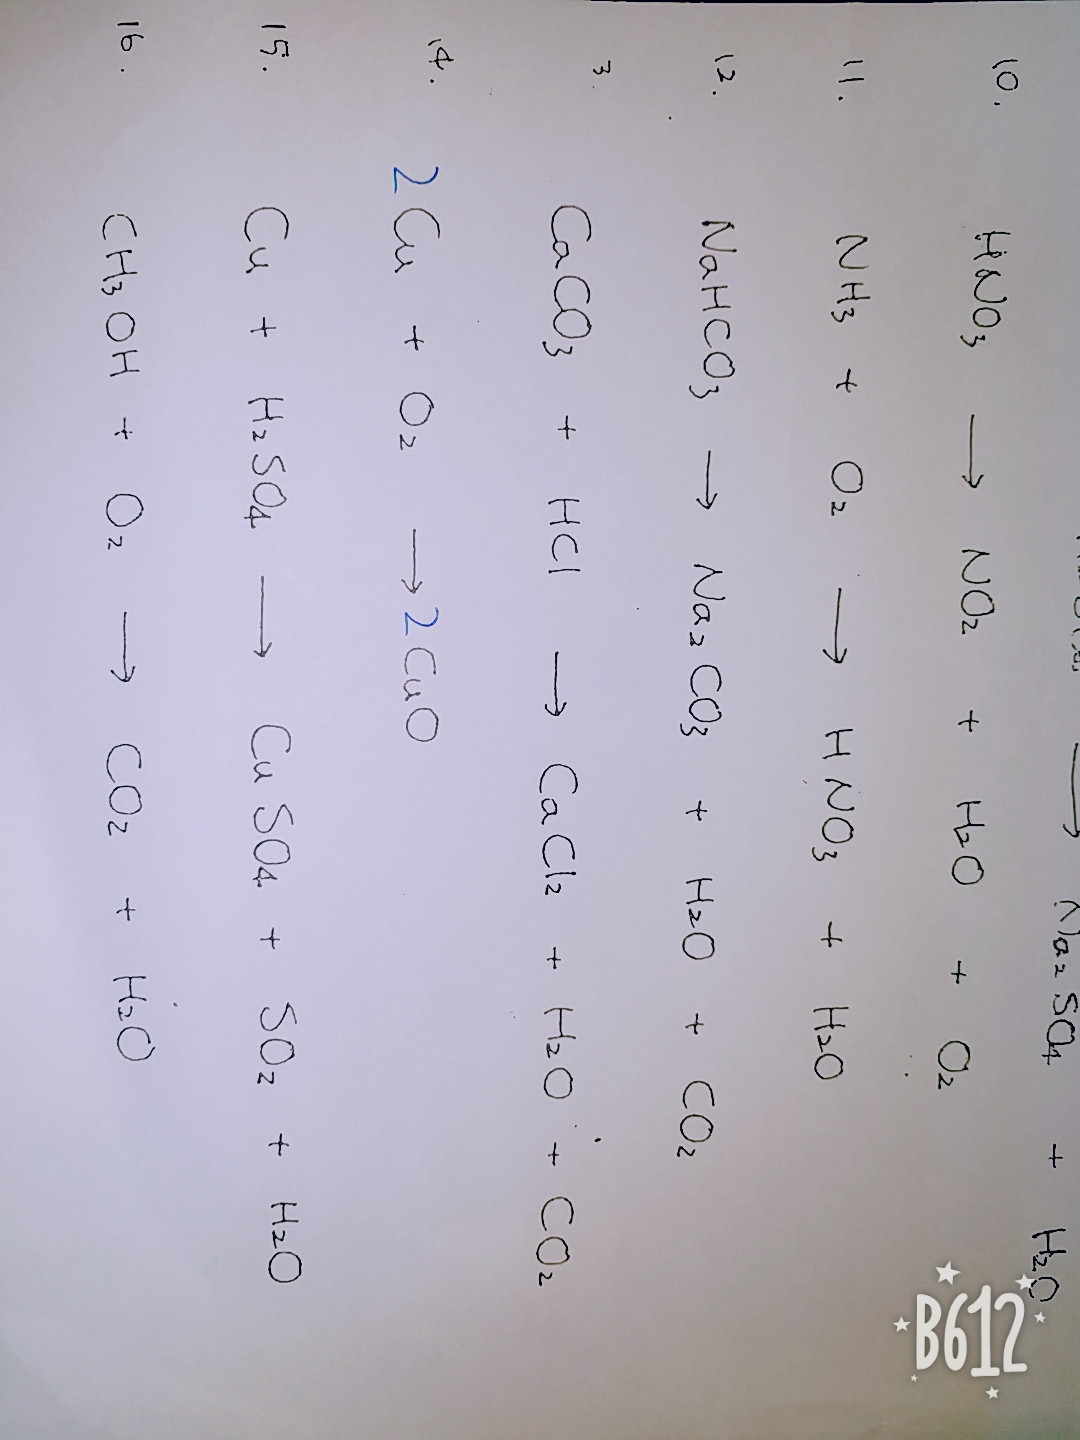 Na₂SO₄ + H₂O
10. HNO₃ → NO₂ + H₂O + O₂
11. NH₃ + O₂ → HNO₃ + H₂O
12. NaHCO₃ → Na₂CO₃ + H₂O + CO₂
3. CaCO₃ + HCl → CaCl₂ + H₂O + CO₂
14. 2Cu + O₂ → 2CuO
15. Cu + H₂SO₄ → CuSO₄ + SO₂ + H₂O
16. CH₃OH + O₂ → CO₂ + H₂O
B612